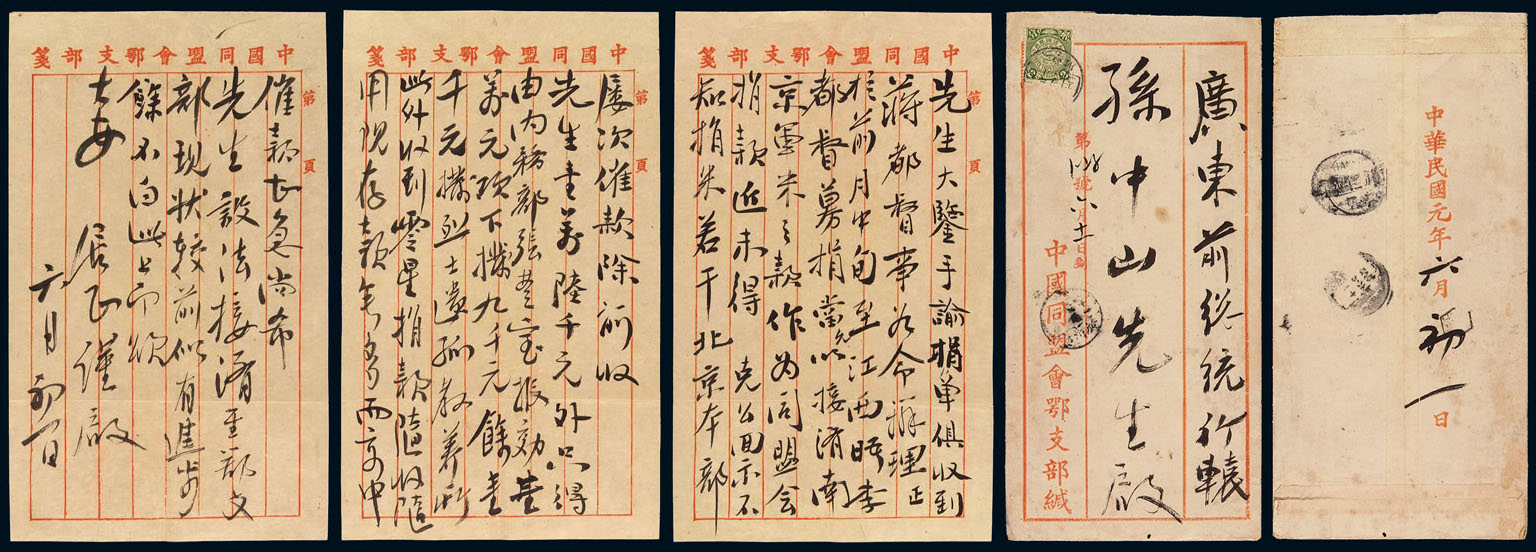 中華民國元年六月初一日
廣東前總統行轅
孫中山先生啟
第 號六月十一日到
中國同盟會鄂支部緘
中國同盟會鄂支部箋
第 頁
先生大鑒手諭捐單俱收到
蔣都督事如命辦理正
於前月中旬至江西晤李
都督募捐當以接濟南
京軍米之款作为同盟会
捐款近未得 克公回示不
知捐米若干北京本部
中國同盟會鄂支部箋
第 頁
屡次催款除前收
先生壹萬陸千元外只得
由内務部張楚宝振 壹
萬元項下撥九千元餘壹
千元撥烈士遺孤教养所
此外收到零星捐款隨收隨
用現存款無多而京中
中國同盟會鄂支部箋
第 頁
催款甚急尚希
先生設法接濟至鄂支
部現状較前似有進步
餘不白此上即頌
大安 居正謹啟
六月初一日